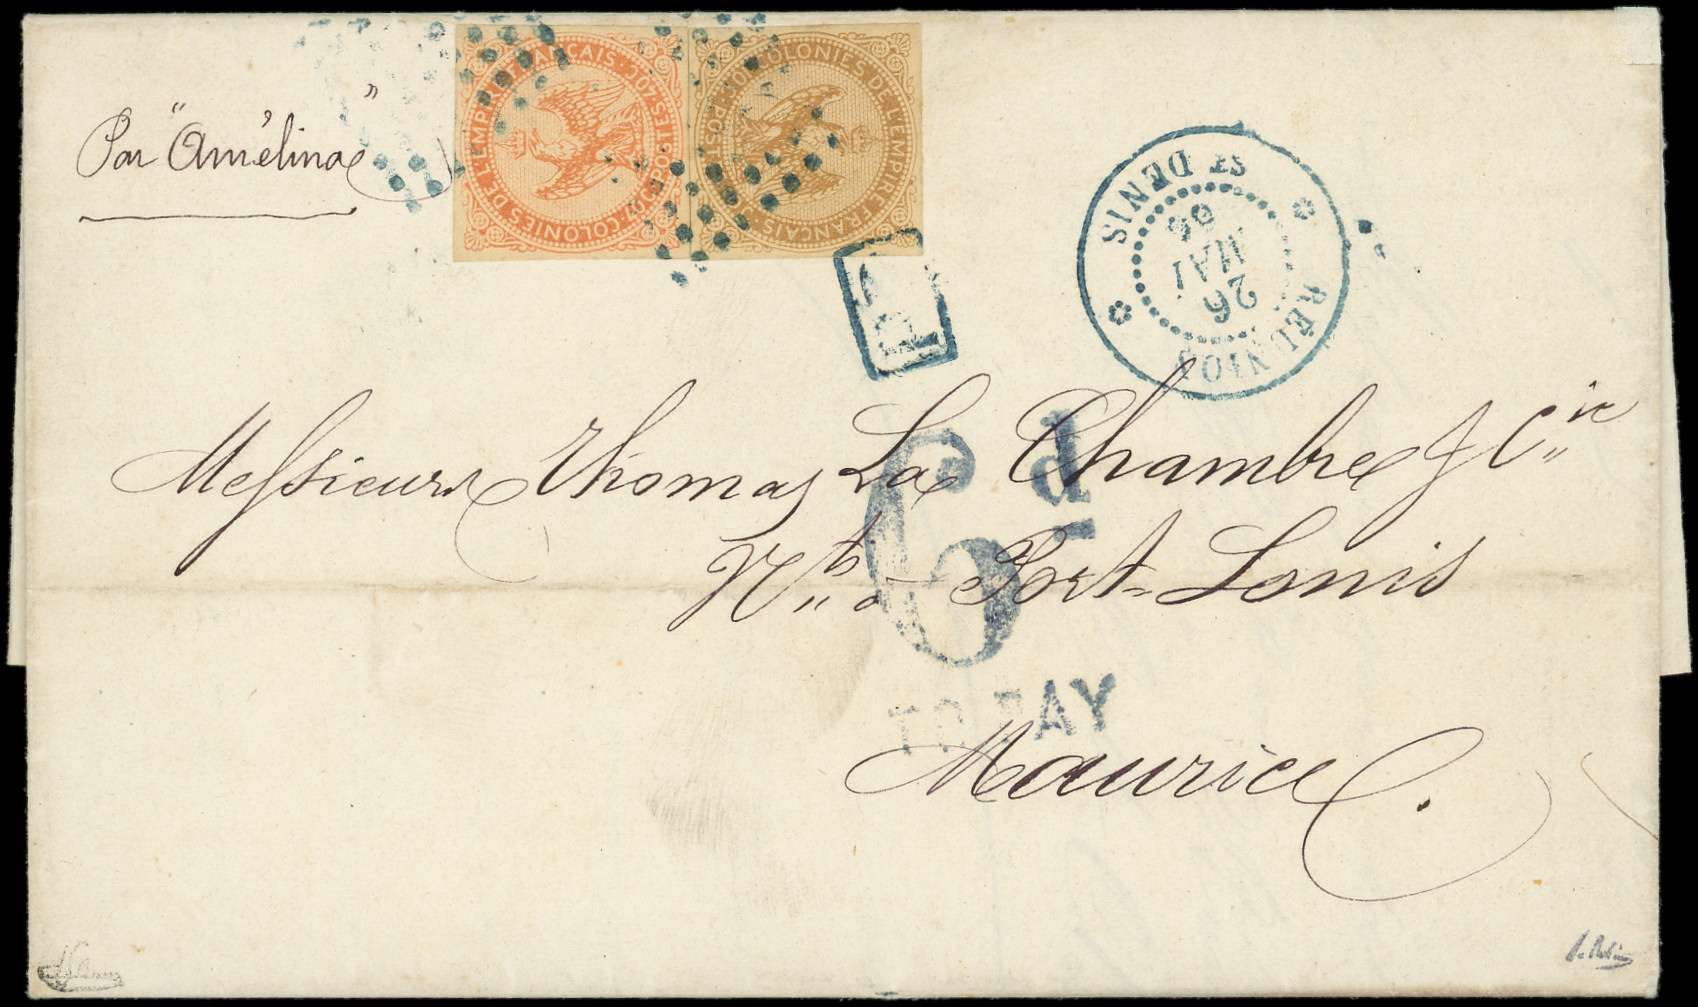 Par "Amélina"
COLONIES DE L'EMPIRE FRANÇAIS · POSTES · 40C
COLONIES DE L'EMPIRE FRANÇAIS · POSTES · 10C
RÉUNION
26
MAI
66
ST DENIS
6d
Messieurs Thomas La Chambre & Cie
Nts Port-Louis
TO PAY
Maurice.